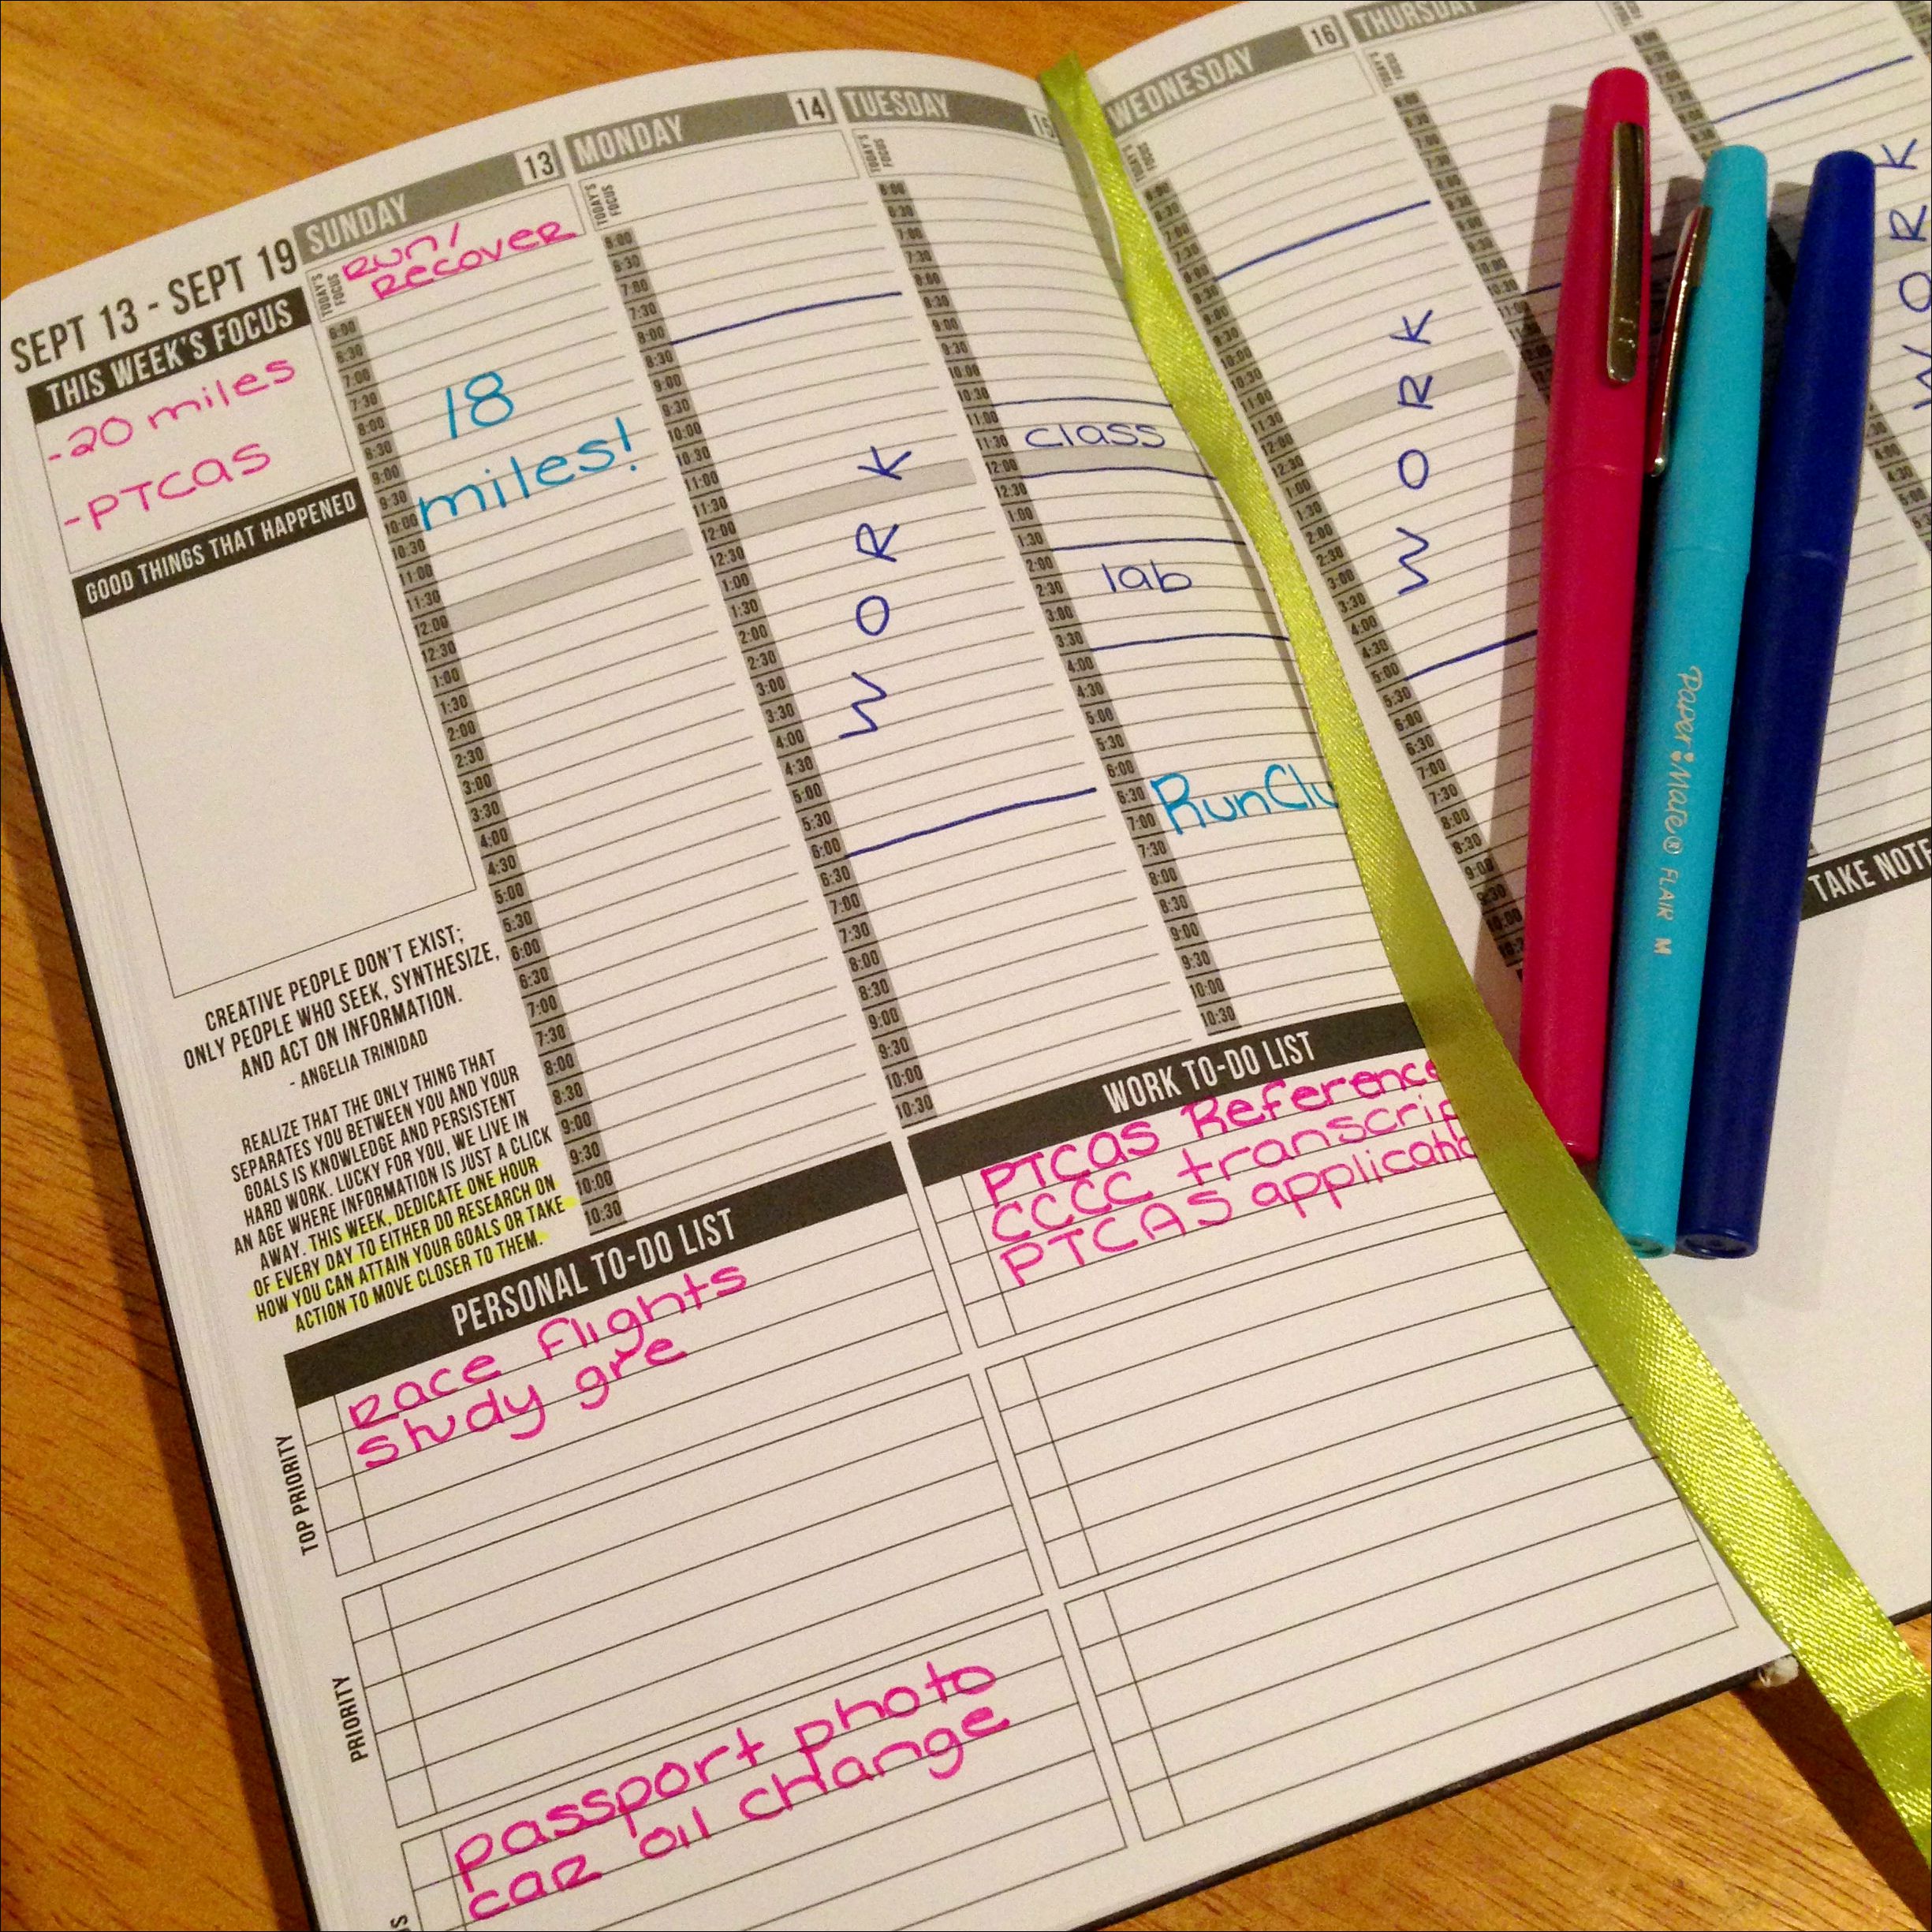 SEPT 13 - SEPT 19
THIS WEEK'S FOCUS
-20 miles
-PTCAS
GOOD THINGS THAT HAPPENED
CREATIVE PEOPLE DON'T EXIST;
ONLY PEOPLE WHO SEEK, SYNTHESIZE,
AND ACT ON INFORMATION.
- ANGELIA TRINIDAD
REALIZE THAT THE ONLY THING THAT
SEPARATES YOU BETWEEN YOU AND YOUR
GOALS IS KNOWLEDGE AND PERSISTENT
HARD WORK. LUCKY FOR YOU, WE LIVE IN
AN AGE WHERE INFORMATION IS JUST A CLICK
AWAY. THIS WEEK, DEDICATE ONE HOUR
OF EVERY DAY TO EITHER DO RESEARCH ON
HOW YOU CAN ATTAIN YOUR GOALS OR TAKE
ACTION TO MOVE CLOSER TO THEM.
SUNDAY 13
TODAY'S FOCUS
Run/
Recover
6:00
6:30
7:00
7:30
8:00
8:30
9:00
9:30
10:00
10:30
11:00
11:30
12:00
12:30
1:00
1:30
2:00
2:30
3:00
3:30
4:00
4:30
5:00
5:30
6:00
6:30
7:00
7:30
8:00
8:30
9:00
9:30
10:00
10:30
18
miles!
MONDAY 14
TODAY'S FOCUS
6:00
6:30
7:00
7:30
8:00
8:30
9:00
9:30
10:00
10:30
11:00
11:30
12:00
12:30
1:00
1:30
2:00
2:30
3:00
3:30
4:00
4:30
5:00
5:30
6:00
6:30
7:00
7:30
8:00
8:30
9:00
9:30
10:00
10:30
WORK
TUESDAY 15
TODAY'S FOCUS
6:00
6:30
7:00
7:30
8:00
8:30
9:00
9:30
10:00
10:30
11:00
11:30
12:00
12:30
1:00
1:30
2:00
2:30
3:00
3:30
4:00
4:30
5:00
5:30
6:00
6:30
7:00
7:30
8:00
8:30
9:00
9:30
10:00
10:30
class
lab
RunClu
WEDNESDAY 16
TODAY'S FOCUS
6:00
6:30
7:00
7:30
8:00
8:30
9:00
9:30
10:00
10:30
11:00
11:30
12:00
12:30
1:00
1:30
2:00
2:30
3:00
3:30
4:00
4:30
5:00
5:30
6:00
6:30
7:00
7:30
8:00
8:30
9:00
9:30
10:00
WORK
THURSDAY
TODAY'S FOCUS
WORK
TAKE NOTE
Paper:Mate® FLAIR M
PERSONAL TO-DO LIST
TOP PRIORITY
Race flights
study gre
PRIORITY
passport photo
car oil change
WORK TO-DO LIST
PTCAS Reference
CCCC transcrip
PTCAS applicatio